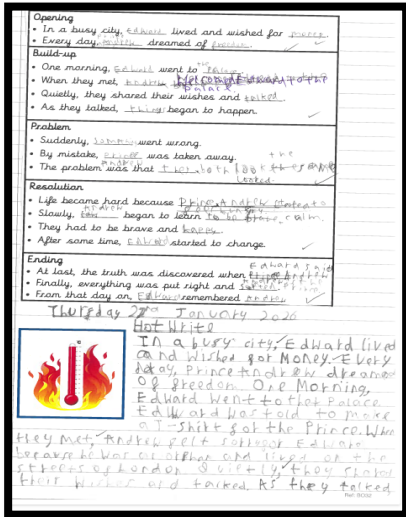 Opening
• In a busy city, Edward lived and wished for money.
• Every day, Andrew dreamed of freedom.
Build-up
• One morning, Edward went to the Palace
• When they met, Andrew Welcomed Edward to the
Palace.
• Quietly, they shared their wishes and talked.
• As they talked, things began to happen.
Problem
• Suddenly, went wrong.
• By mistake, Prince was taken away.
Andrew
• The problem was that they both the
looked.
Resolution
• Life became hard because Prince Andrew
• Slowly, began to learn to be calm.
Andrew
• They had to be brave and happy.
• After some time, Edward started to change.
Ending
Edward said
• At last, the truth was discovered when Andrew
• Finally, everything was put right and
• From that day on, Edward remembered Andrew.
Thursday January 2026
Hot Write
In a busy city, Edward lived
and wished for Money. Every
day, Prince Andrew dreamed
Of freedom. One Morning,
Edward went to the Palace.
Edward was told to make
a T-shirt for the Prince. When
they met, Andrew felt sorry for Edward
because he was an orphan and lived on the
streets of London Quietly, they shared
their wishes and talked. As they talked